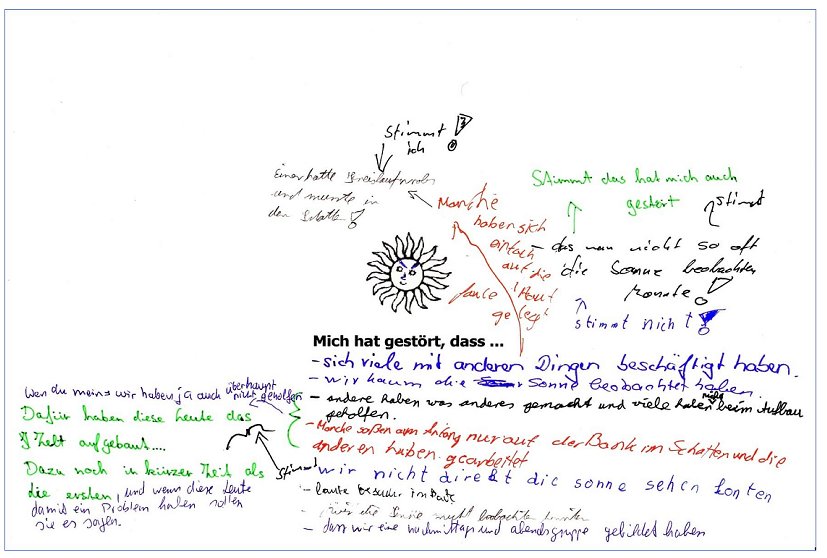 Stimmt
ich
Einer hatte
und musste in
den
Manche
haben sich
einfach
auf die
faule Haut
gelegt
Stimmt das hat mich auch
gestört
stimmt
- das man nicht so oft
die Sonne beobachten
konnte!
stimmt nicht!
Mich hat gestört, dass ...
- sich viele mit anderen Dingen beschäftigt haben.
- wir kaum die Sonne beobachtet haben.
- andere haben was anderes gemacht und viele haben nicht beim Aufbau
geholfen.
- Manche saßen am Anfang nur auf der Bank im Schatten und die
anderen haben gearbeitet
- wir nicht direkt die sonne sehen konten
- laute besucher im
- die nicht beobachten
- dass wir eine nachmittags und abendsgruppe gebildet haben
Wen du meinst wir haben ja auch überhaupt
nicht geholfen
Dafür haben diese Leute das
Zelt aufgebaut....
Dazu noch in kürzer Zeit als
die ersten, und wenn diese Leute
damit ein Problem haben sollen
sie es sagen.
Stimmt